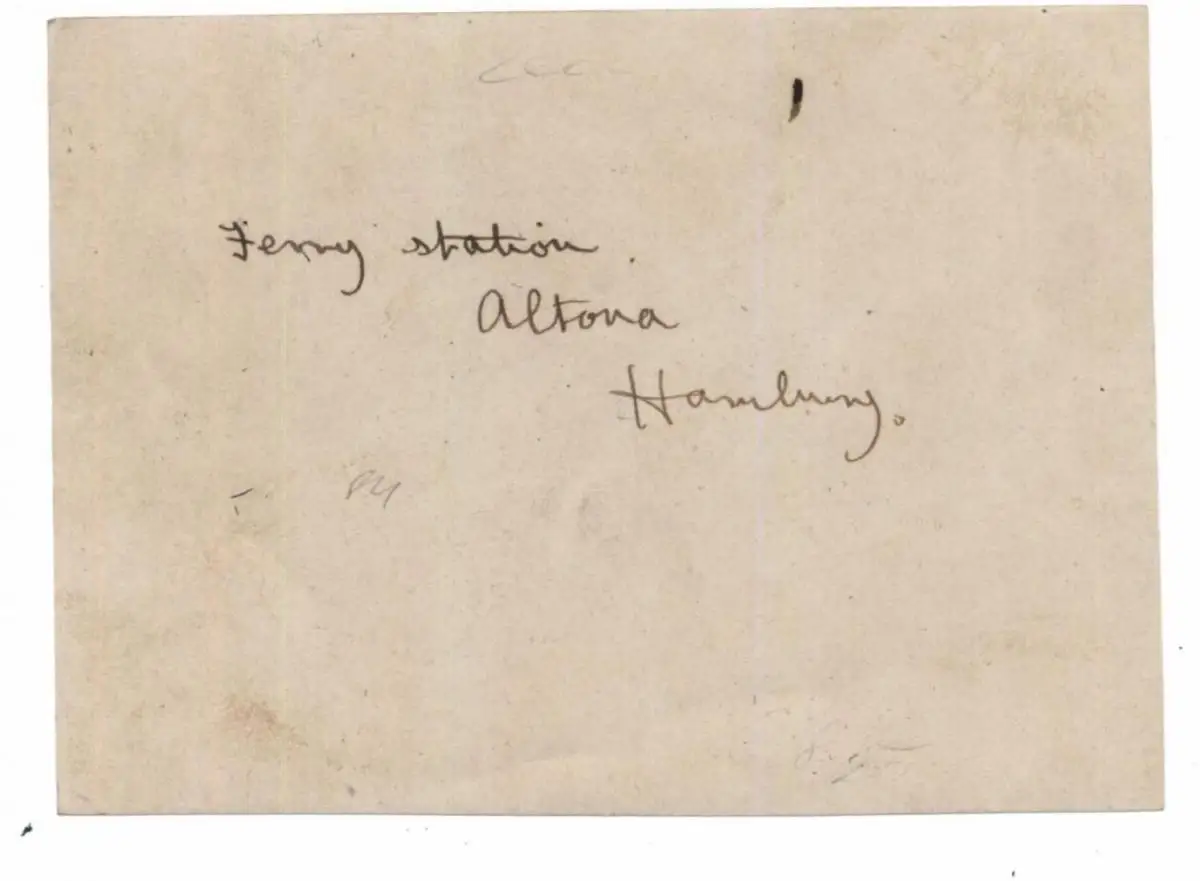 Ferry station.
Altona
Hamburg.